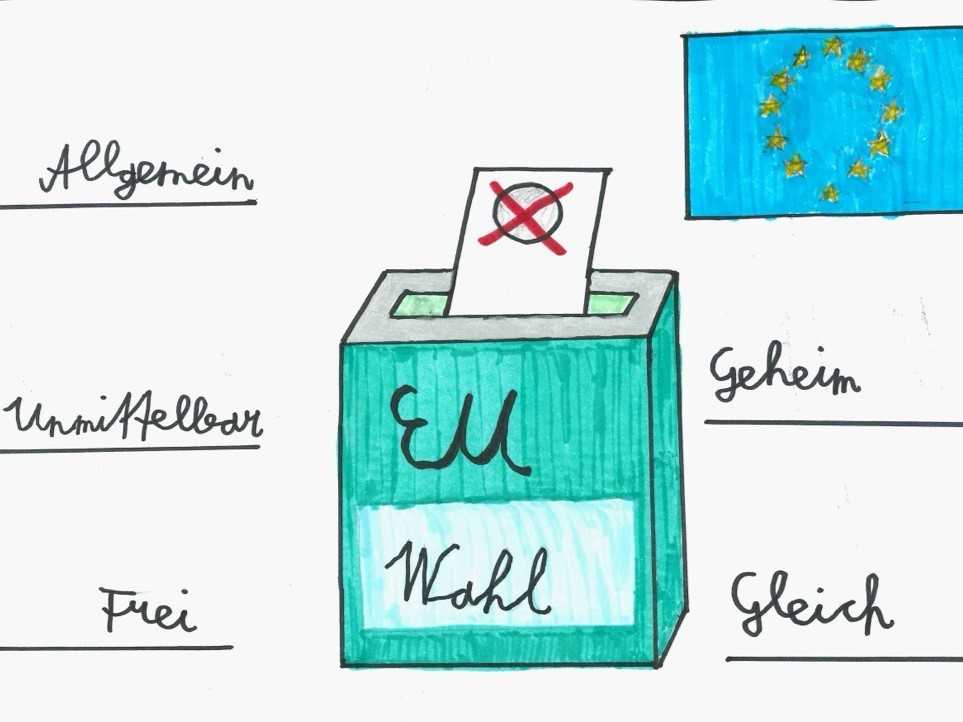 Allgemein
Unmittelbar
Frei
EU
Wahl
Geheim
Gleich